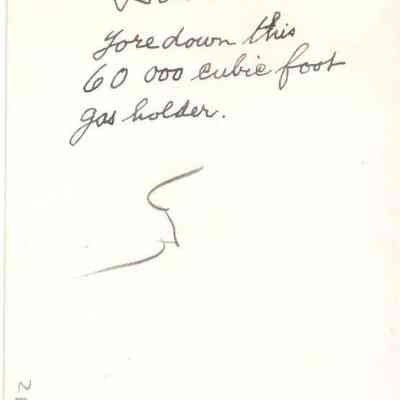 Tore down this
60 000 cubic foot
gas holder.